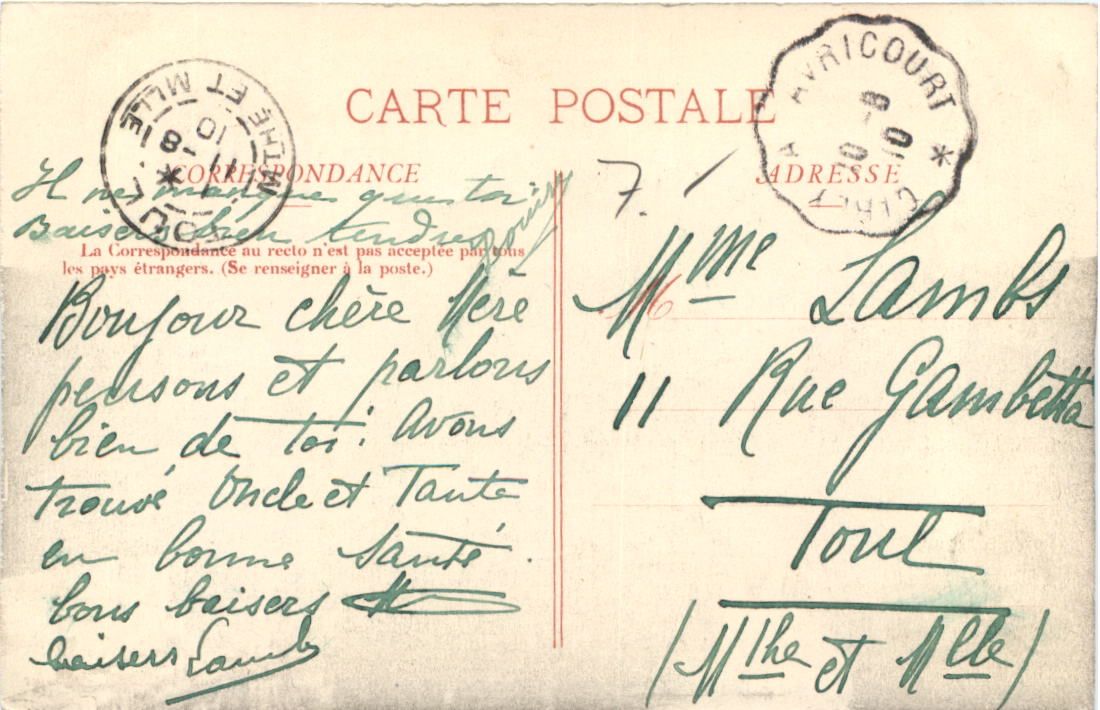 CARTE POSTALE
CORRESPONDANCE
Il ne manque que toi
Baisers bien tendres
La Correspondance au recto n'est pas acceptée par tous
les pays étrangers. (Se renseigner à la poste.)
Bonjour chère Mère
pensons et parlons
bien de toi. Avons
trouvé Oncle et Tante
en bonne santé.
bons baisers
baisers
TOUL
MTHE ET MLLE
11-8
10
CIREY A AVRICOURT
10 -8
10
ADRESSE
7.
M
Mme Lambs
11 Rue Gambetta
Toul
(Mthe et Mlle)